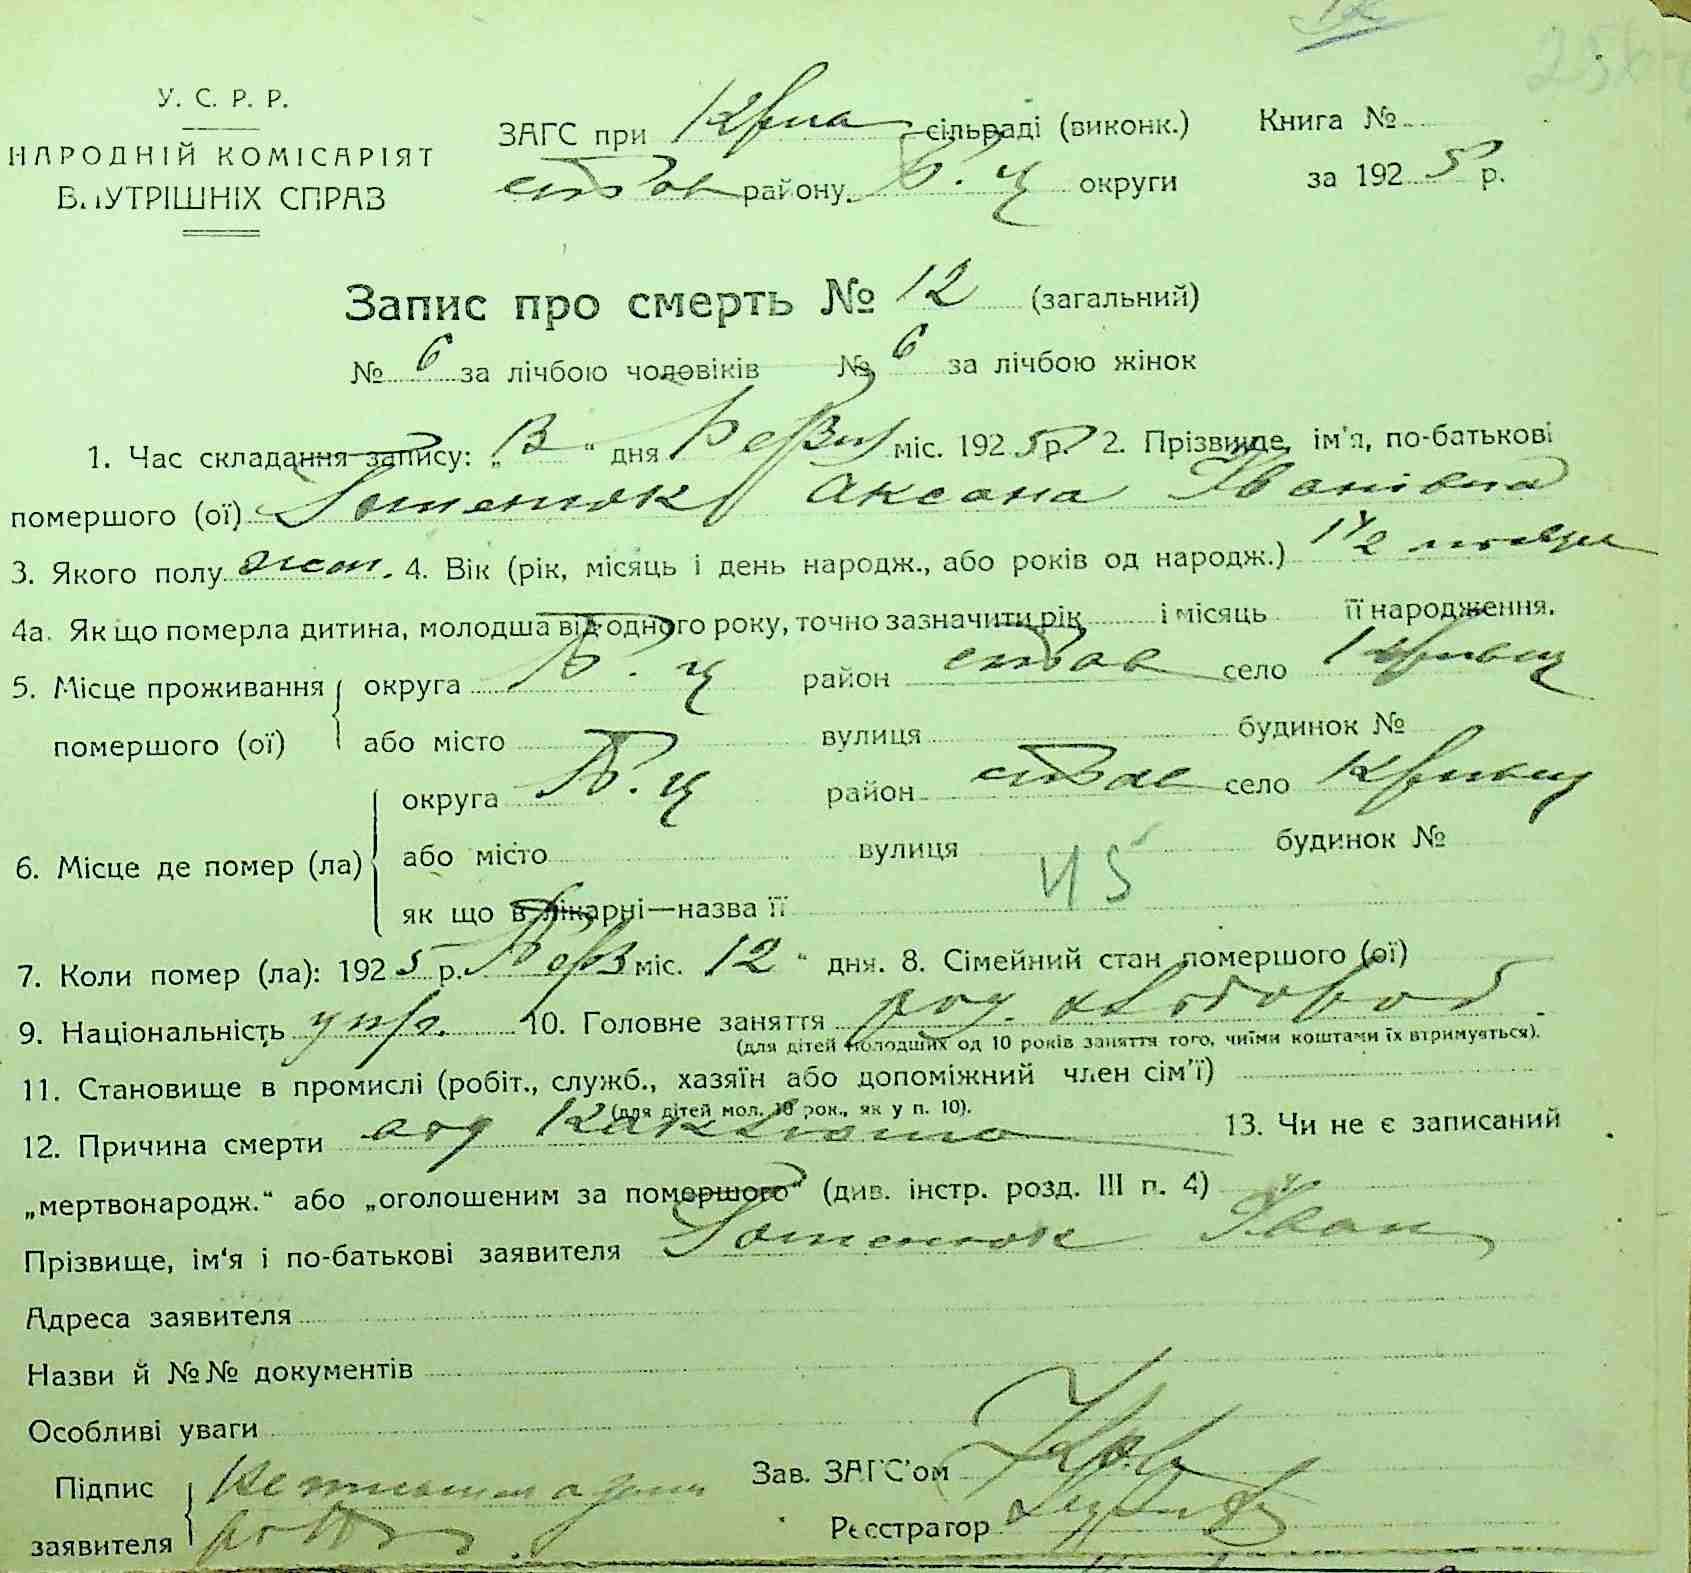 У. С. Р. Р.
НАРОДНІЙ КОМІСАРІЯТ
ВНУТРІШНІХ СПРАВ
ЗАГС при сільраді (виконк.)
став району Б. Ц округи
Книга №
за 1925 р.
Запис про смерть № 12 (загальний)
№ 6 за лічбою чоловіків № 6 за лічбою жінок
1. Час складання запису: „13“ дня Березня міс. 1925 р. 2. Прізвище, ім'я, по-батькові
помершого (ої) Аксана Іванівна
3. Якого полу жен. 4. Вік (рік, місяць і день народж., або років од народж.) 1 1/2
4а. Як що померла дитина, молодша від одного року, точно зазначити рік і місяць її народження.
5. Місце проживання помершого (ої)
округа Б. Ц район став село Кривец
або місто вулиця будинок №
6. Місце де помер (ла)
округа Б. Ц район став село Кривец
або місто вулиця будинок №
45
як що в лікарні—назва її
7. Коли помер (ла): 1925 р. Берз міс. 12 “ дня. 8. Сімейний стан помершого (ої)
9. Національність укр. 10. Головне заняття хлібороб
(для дітей молодших од 10 років заняття того, чиїми коштами їх втримується).
11. Становище в промислі (робіт., служб., хазяїн або допоміжний член сім'ї)
(для дітей мол. 10 рок., як у п. 10).
12. Причина смерти од 13. Чи не є записаний
„мертвонародж.“ або „оголошеним за помершого“ (див. інстр. розд. III п. 4)
Прізвище, ім'я і по-батькові заявителя Іван
Адреса заявителя
Назви й №№ документів
Особливі уваги
Підпис заявителя
Зав. ЗАГС'ом
Реєстратор